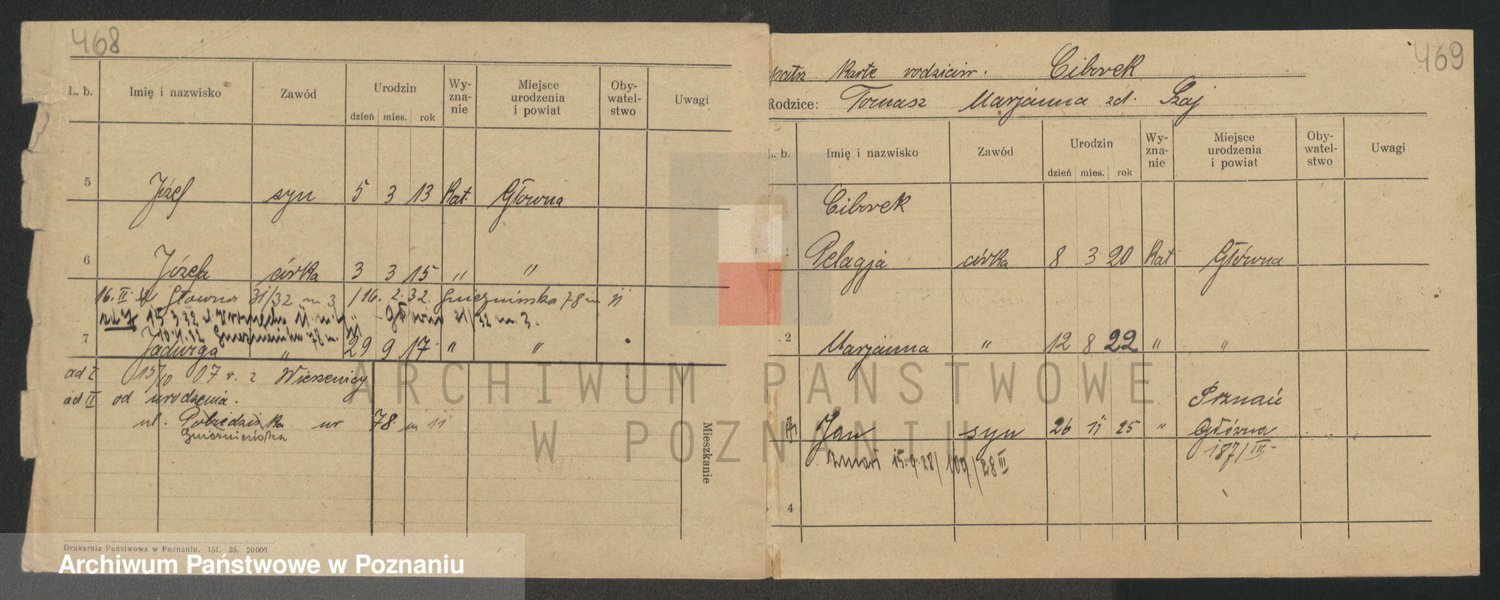 468
L. b. Imię i nazwisko Zawód Urodzin Wyznanie Miejsce urodzenia i powiat Obywatelstwo Uwagi
dzień mies. rok
5 Józef syn 5 3 13 Kat. Główna
6 Józefa córka 3 3 15 " "
16. II. Główna 31/32 m 3 /16. 2. 32. Gnieźnieńska 78 m 11
15 3 32 Główna 31/32 m. 3.
Gnieźnieńska 78 m.
7 Jadwiga " 29 9 17 " "
ad I 15/10 17 r. z Wierzenicy
ad II od urodzenia.
ul. Pobiedziska nr 78 m 11
Gnieźnieńska
Mieszkanie
Drukarnia Państwowa w Poznaniu. 151. 25. 20000
469
patrz kartę rodziców. Cibvek
Rodzice: Tomasz Marjanna zd. Szaj
L. b. Imię i nazwisko Zawód Urodzin Wyznanie Miejsce urodzenia i powiat Obywatelstwo Uwagi
dzień mies. rok
Cibvek
1 Pelagja córka 8 3 20 Kat Główna
2 Marjanna " 12 8 22 " "
Poznań
3 Jan syn 26 11 25 " Główna
187/III
zmarł 15. 9. 28/ 109/28 III
4
ARCHIWUM PAŃSTWOWE
W POZNANIU
Archiwum Państwowe w Poznaniu